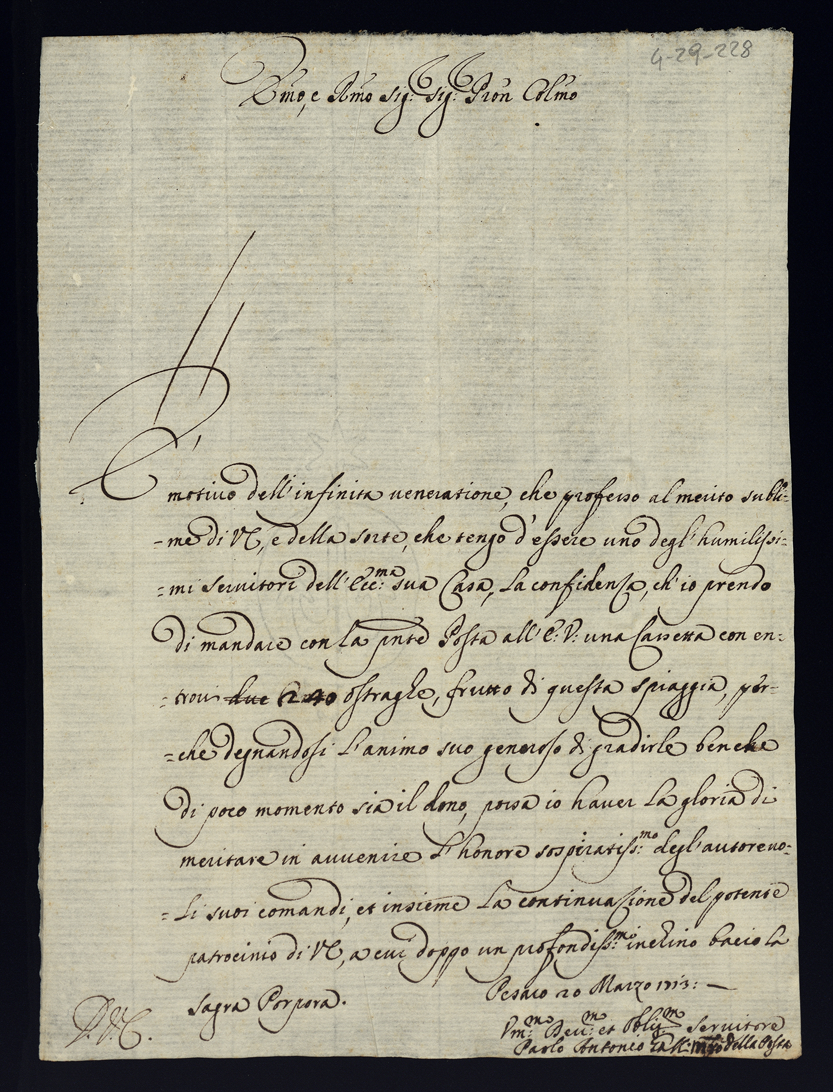 4-29-228
Emo, e Rmo Sig:r Sig:r Pron Colmo
È motiuo dell'infinita ueneratione, che professo al merito subli-
-me di VE, e della sorte, che tengo d'essere uno degl'humilissi-
-mi seruitori dell'Ecc:ma sua Casa, La confidenza, ch'io prendo
di mandare con la pnte Posta all'E: V: una Cassetta con en-
-troui ostraghe, frutto di questa spiaggia, per-
-che degnandosi L'animo suo generoso di gradirle benche
di poco momento sia il dono, possa io hauer La gloria di
meritare in auuenire L'honore sospiratiss:mo degl'autoreuo-
-Li suoi comandi, et insieme La continuazione del potente
patrocinio di VE, a cui doppo un profondiss:mo inchino bacio la
sagra Porpora.
Pesaro 20 Marzo 1713: —
Vm:mo Deu:mo et Oblig:mo Seruitore
Paolo Antonio della Posta